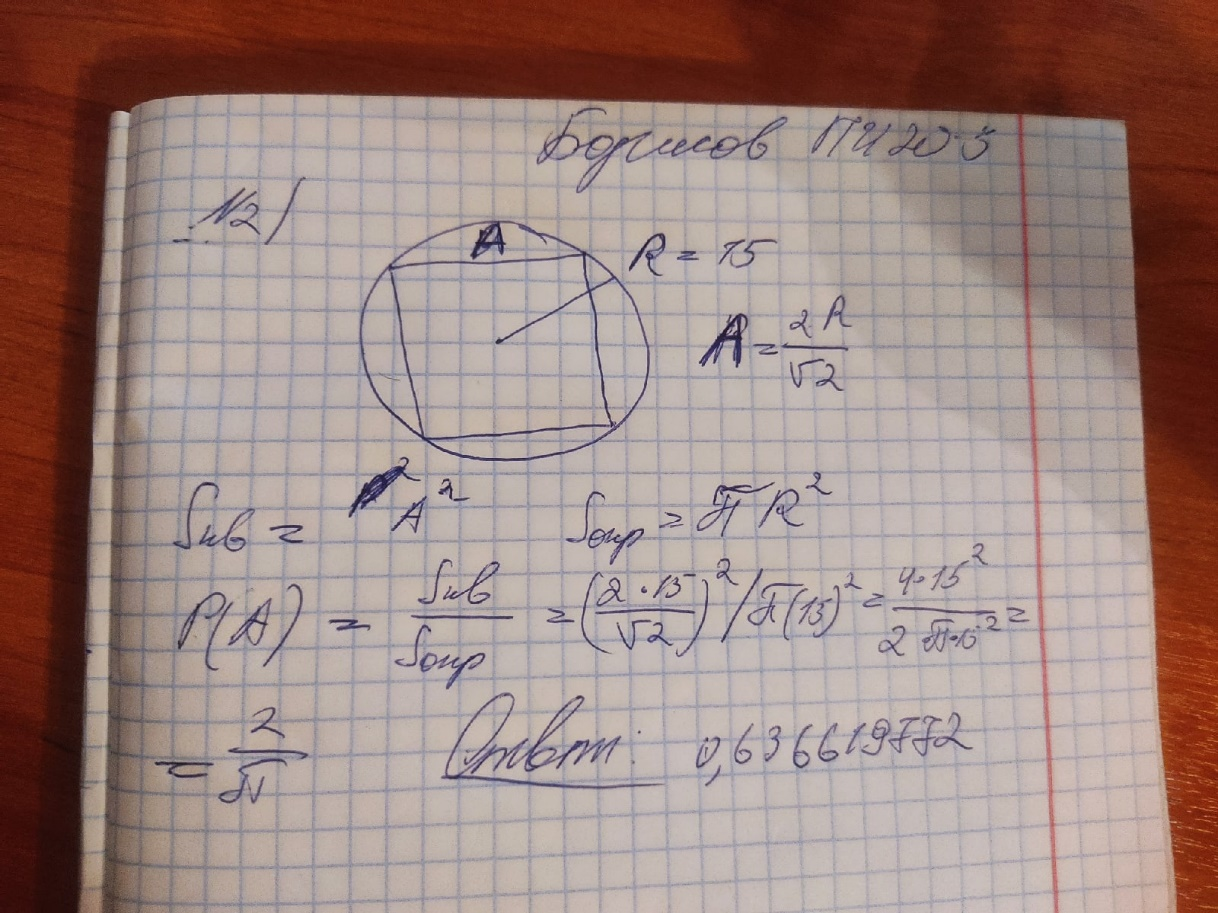 Борисов ПИ20-5
№2/
A
R = 15
A = 2R/√2
Sкв = A²
Sокр = πR²
P(A) = Sкв/Sокр = (2·15/√2)²/π(15)² = 4·15²/2π·15² =
= 2/π
Ответ: 0,636619772